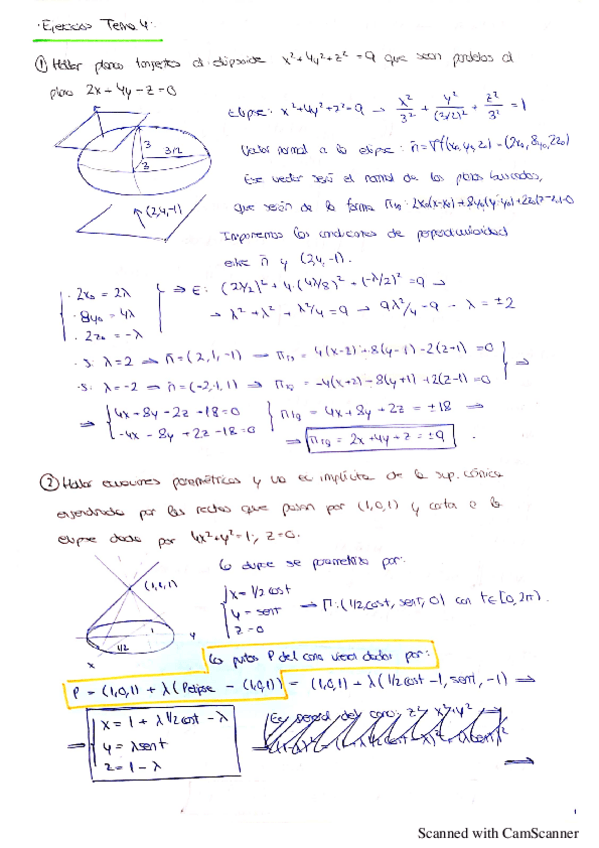 Ejercicios Tema 4:
① Hallar planos tangentes al elipsoide x²+4y²+z²=9 que sean paralelos al
plano 2x+4y-z=0
Elipse: x²+4y²+z²=9 → x²/3² + y²/(3/2)² + z²/3² = 1
3
3/2
3
Vector normal a la elipse: n̄=∇f(x₀,y₀,z₀)=(2x₀,8y₀,2z₀)
Ese vector será el normal de los planos buscados,
(2,4,-1)
que serán de la forma Π: 2x₀(x-x₀)+8y₀(y-y₀)+2z₀(z-z₀)=0
Imponemos las condiciones de perpendicularidad
entre n̄ y (2,4,-1).
· 2x₀ = 2λ
· 8y₀ = 4λ
· 2z₀ = -λ
⇒ E: (2λ/2)² + 4·(4λ/8)² + (-λ/2)² = 9 →
→ λ² + λ² + λ²/4 = 9 → 9λ²/4 = 9 → λ = ±2
· Si λ=2 ⇒ n̄=(2,1,-1) ⇒ Π = 4(x-2)+8(y-1)-2(z+1)=0
· Si λ=-2 ⇒ n̄=(-2,-1,1) ⇒ Π = -4(x+2)-8(y+1)+2(z-1)=0 ⇒
⇒ 4x+8y-2z-18=0
-4x-8y+2z-18=0
Π = 4x+8y+2z = ±18 ⇒
⇒ Π = 2x+4y+z = ±9
② Hallar ecuaciones paramétricas y la ec implícita de la sup. cónica
engendrada por las rectas que pasan por (1,0,1) y corta a la
elipse dada por 4x²+y²=1; z=0.
La elipse se parametriza por:
(1,0,1)
x = 1/2 cost
y = sent
z = 0
⇒ Π: (1/2 cost, sent, 0) con t∈[0,2π).
1
1/2
y
x
Los puntos P del cono vienen dados por:
P = (1,0,1) + λ(Pelipse - (1,0,1)) = (1,0,1) + λ(1/2 cost - 1, sent, -1) ⇒
⇒ x = 1 + λ 1/2 cost - λ
y = λ sent
z = 1 - λ
⇒
1
Scanned with CamScanner